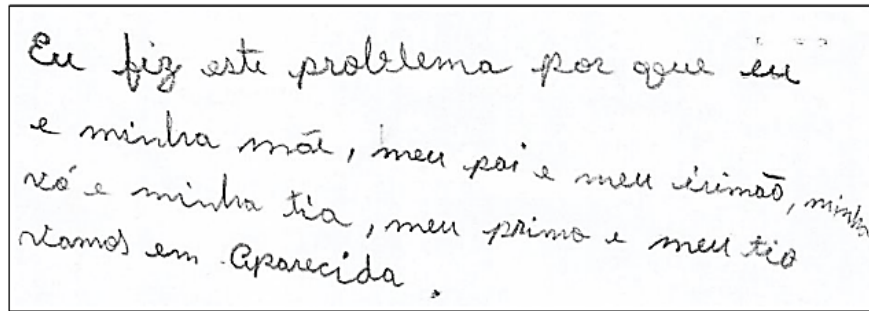 Eu fiz este problema por que eu
e minha mãe, meu pai e meu irimão, minha
vó e minha tia, meu primo e meu tio
vamos em Aparecida.